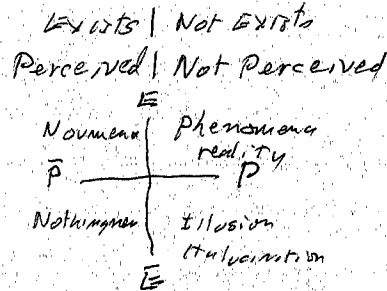 Exists | Not Exists
Perceived | Not Perceived
E
Noumena Phenomena
reality
P̄ P
Nothingness Illusion
Halucination
E̅